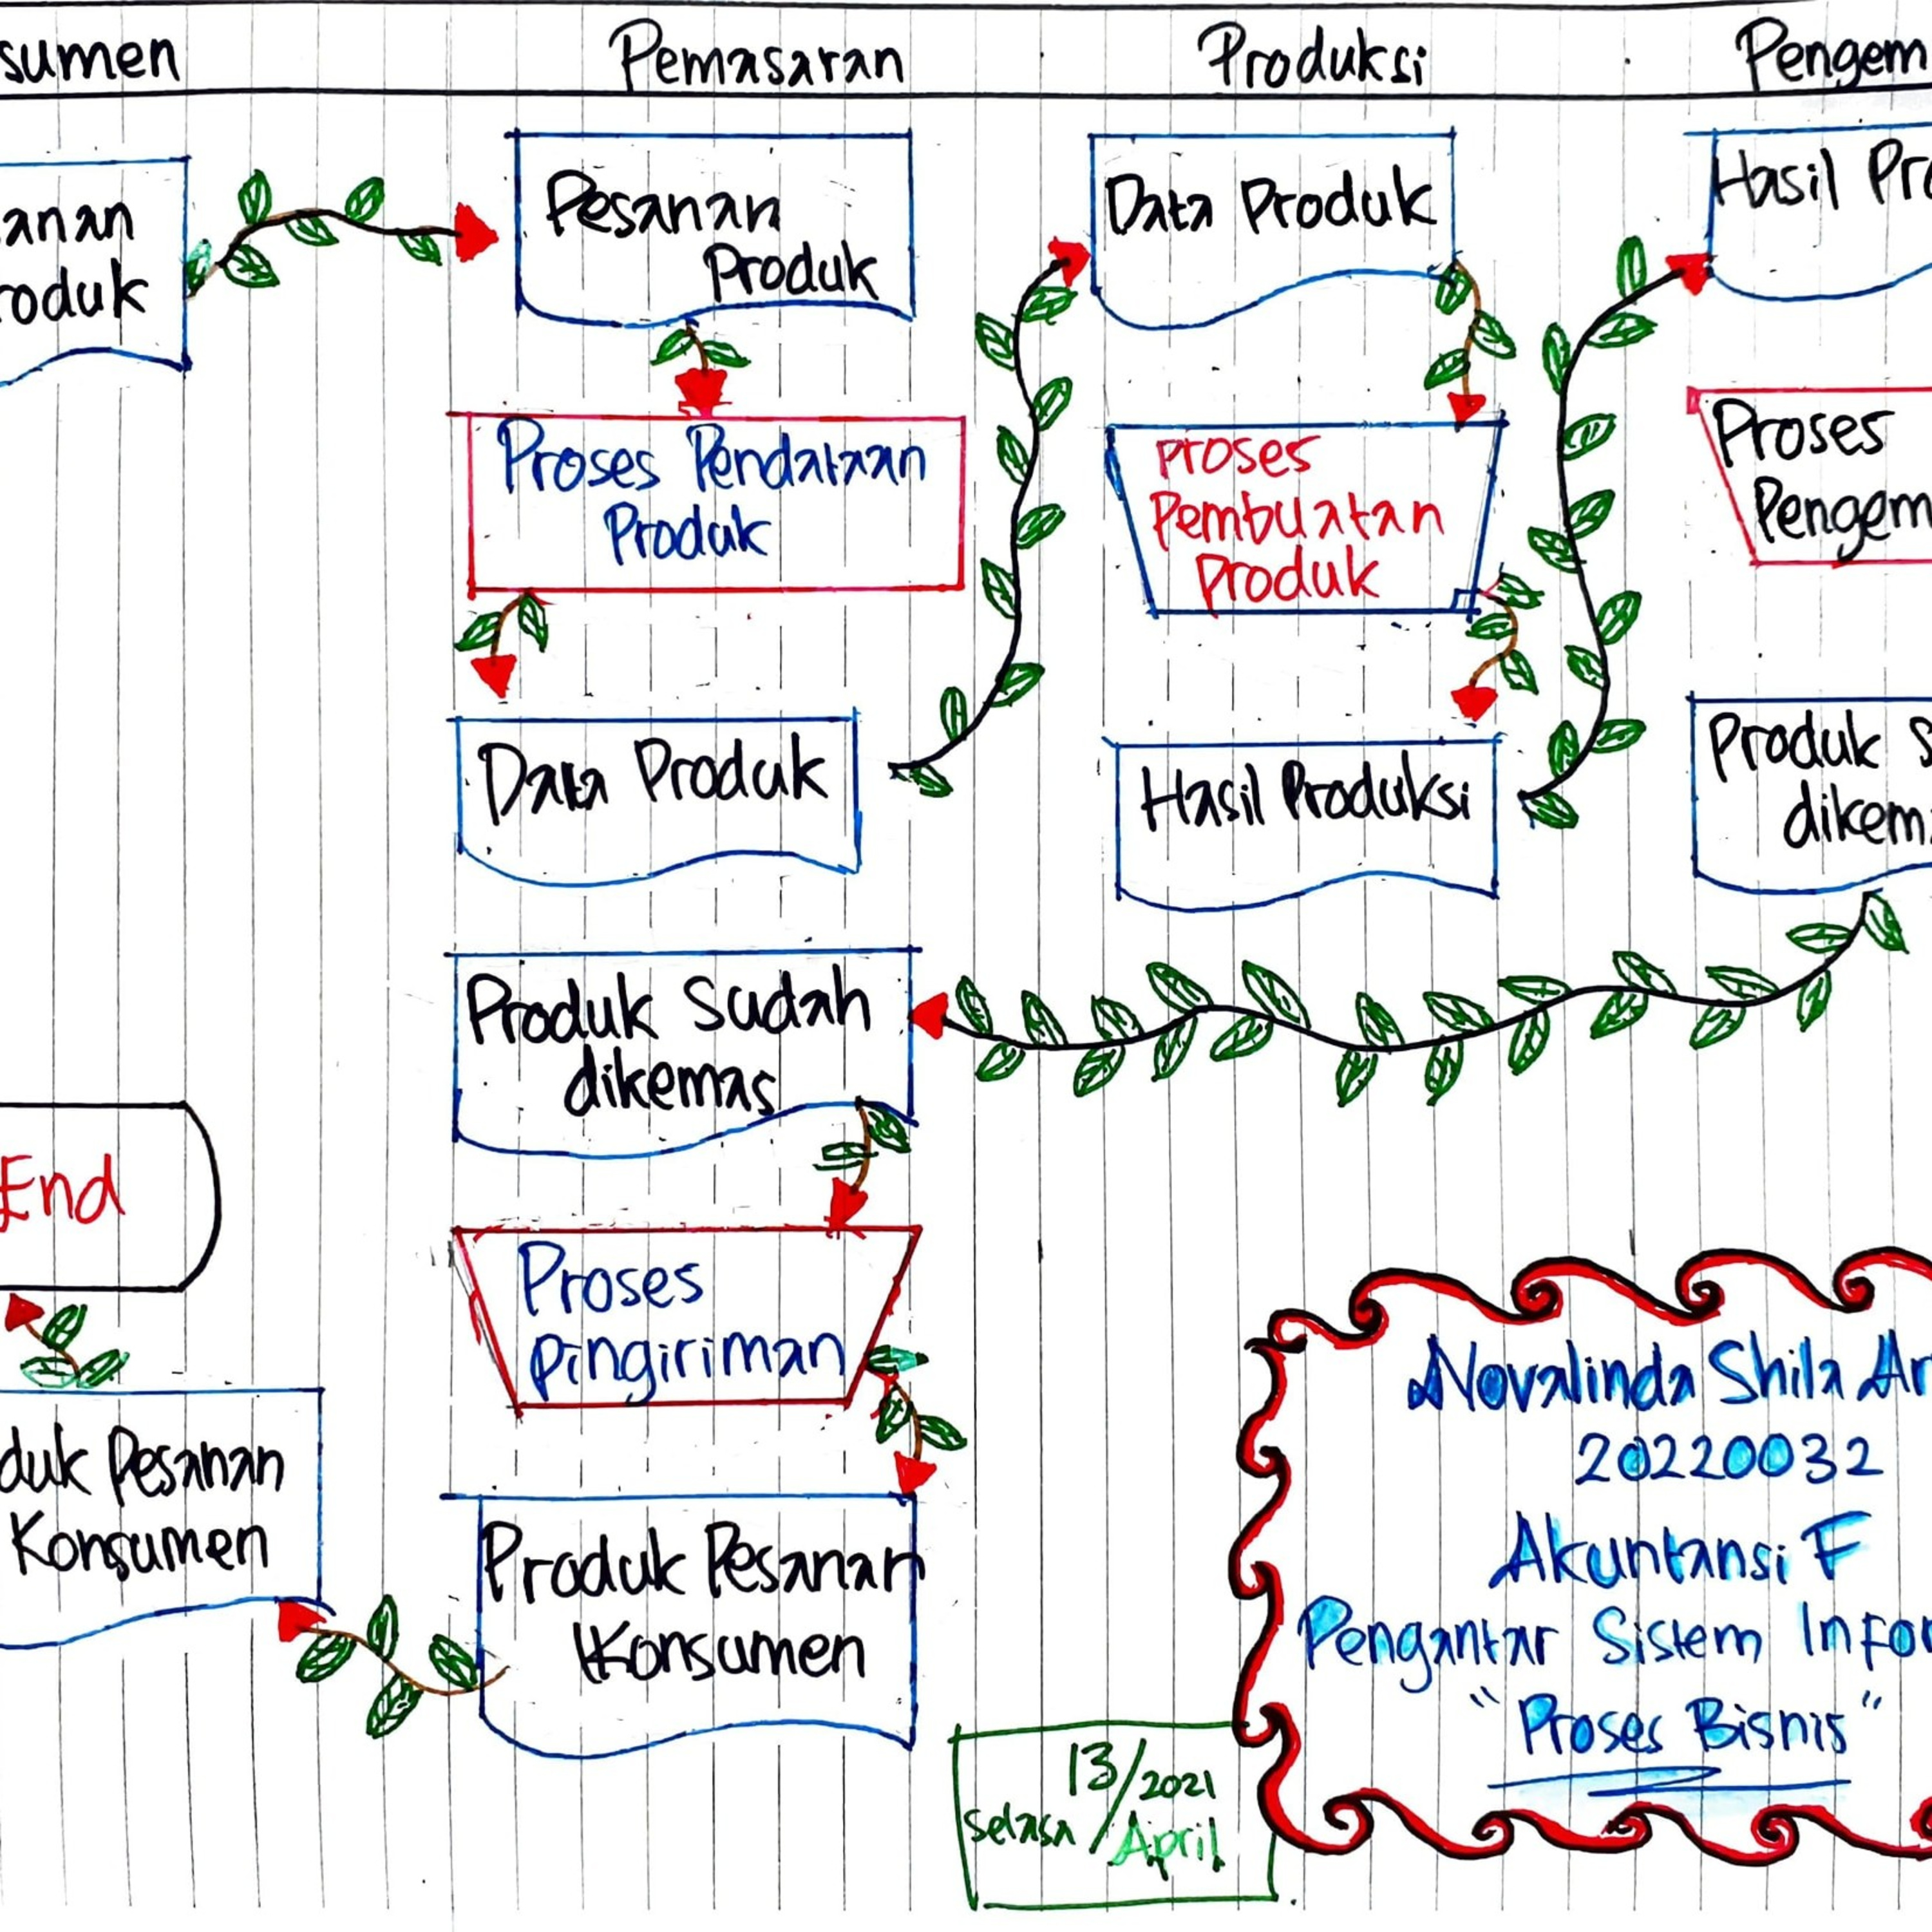 sumen
Pemasaran
Produksi
Pengem
anan
roduk
Pesanan
Produk
Data Produk
Hasil Pro
Proses Pendataan
Produk
Proses
Pembuatan
Produk
Proses
Pengem
Data Produk
Hasil Produksi
Produk S
dikem
Produk Sudah
dikemas
End
Proses
Pingiriman
duk Pesanan
Konsumen
Produk Pesanan
Konsumen
Novalinda Shila Ar
20220032
Akuntansi F
Pengantar Sistem Infor
"Proses Bisnis"
13/2021
Selasa / April